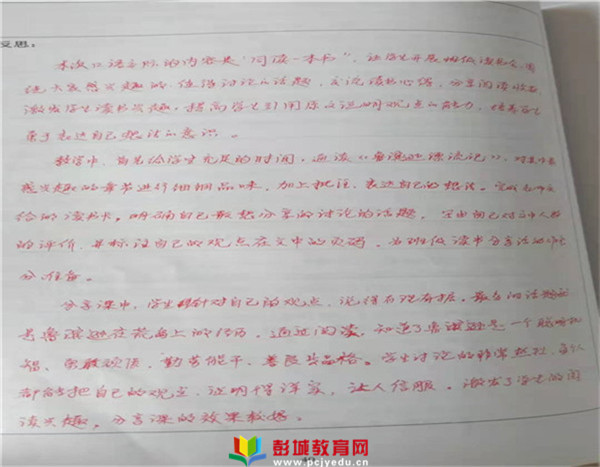 反思:
本次口语交际的内容是"同读一本书",让学生开展班级读书会,围
绕大家感兴趣的、值得讨论的话题,交流读书心得,分享阅读收获,
激发学生读书兴趣,提高学生引用原文说明观点的能力,培养学生
乐于表达自己想法的意识。
教学中,首先给学生充足的时间,通读《鲁滨逊漂流记》,对其中
感兴趣的章节进行细细品味,加上批注,表达自己的想法。完成老师发
给的读书卡,明确自己最想分享的讨论的话题,写出自己对文中人物
的评价,并标注自己的观点在文中的页码,为班级读书分享活动作充
分准备。
分享课中,学生能针对自己的观点,说得有理有据。最多的话题还
是鲁滨逊在荒岛上的经历,通过阅读,知道了鲁滨逊是一个
智、勇敢顽强、勤劳能干、善良 品格。学生讨论的非常热烈,每个人
都能把自己的观点,说明得详实,让人信服,激发了学生的阅
读兴趣,分享课的效果较好。
彭城教育网
www.pcjyedu.cn